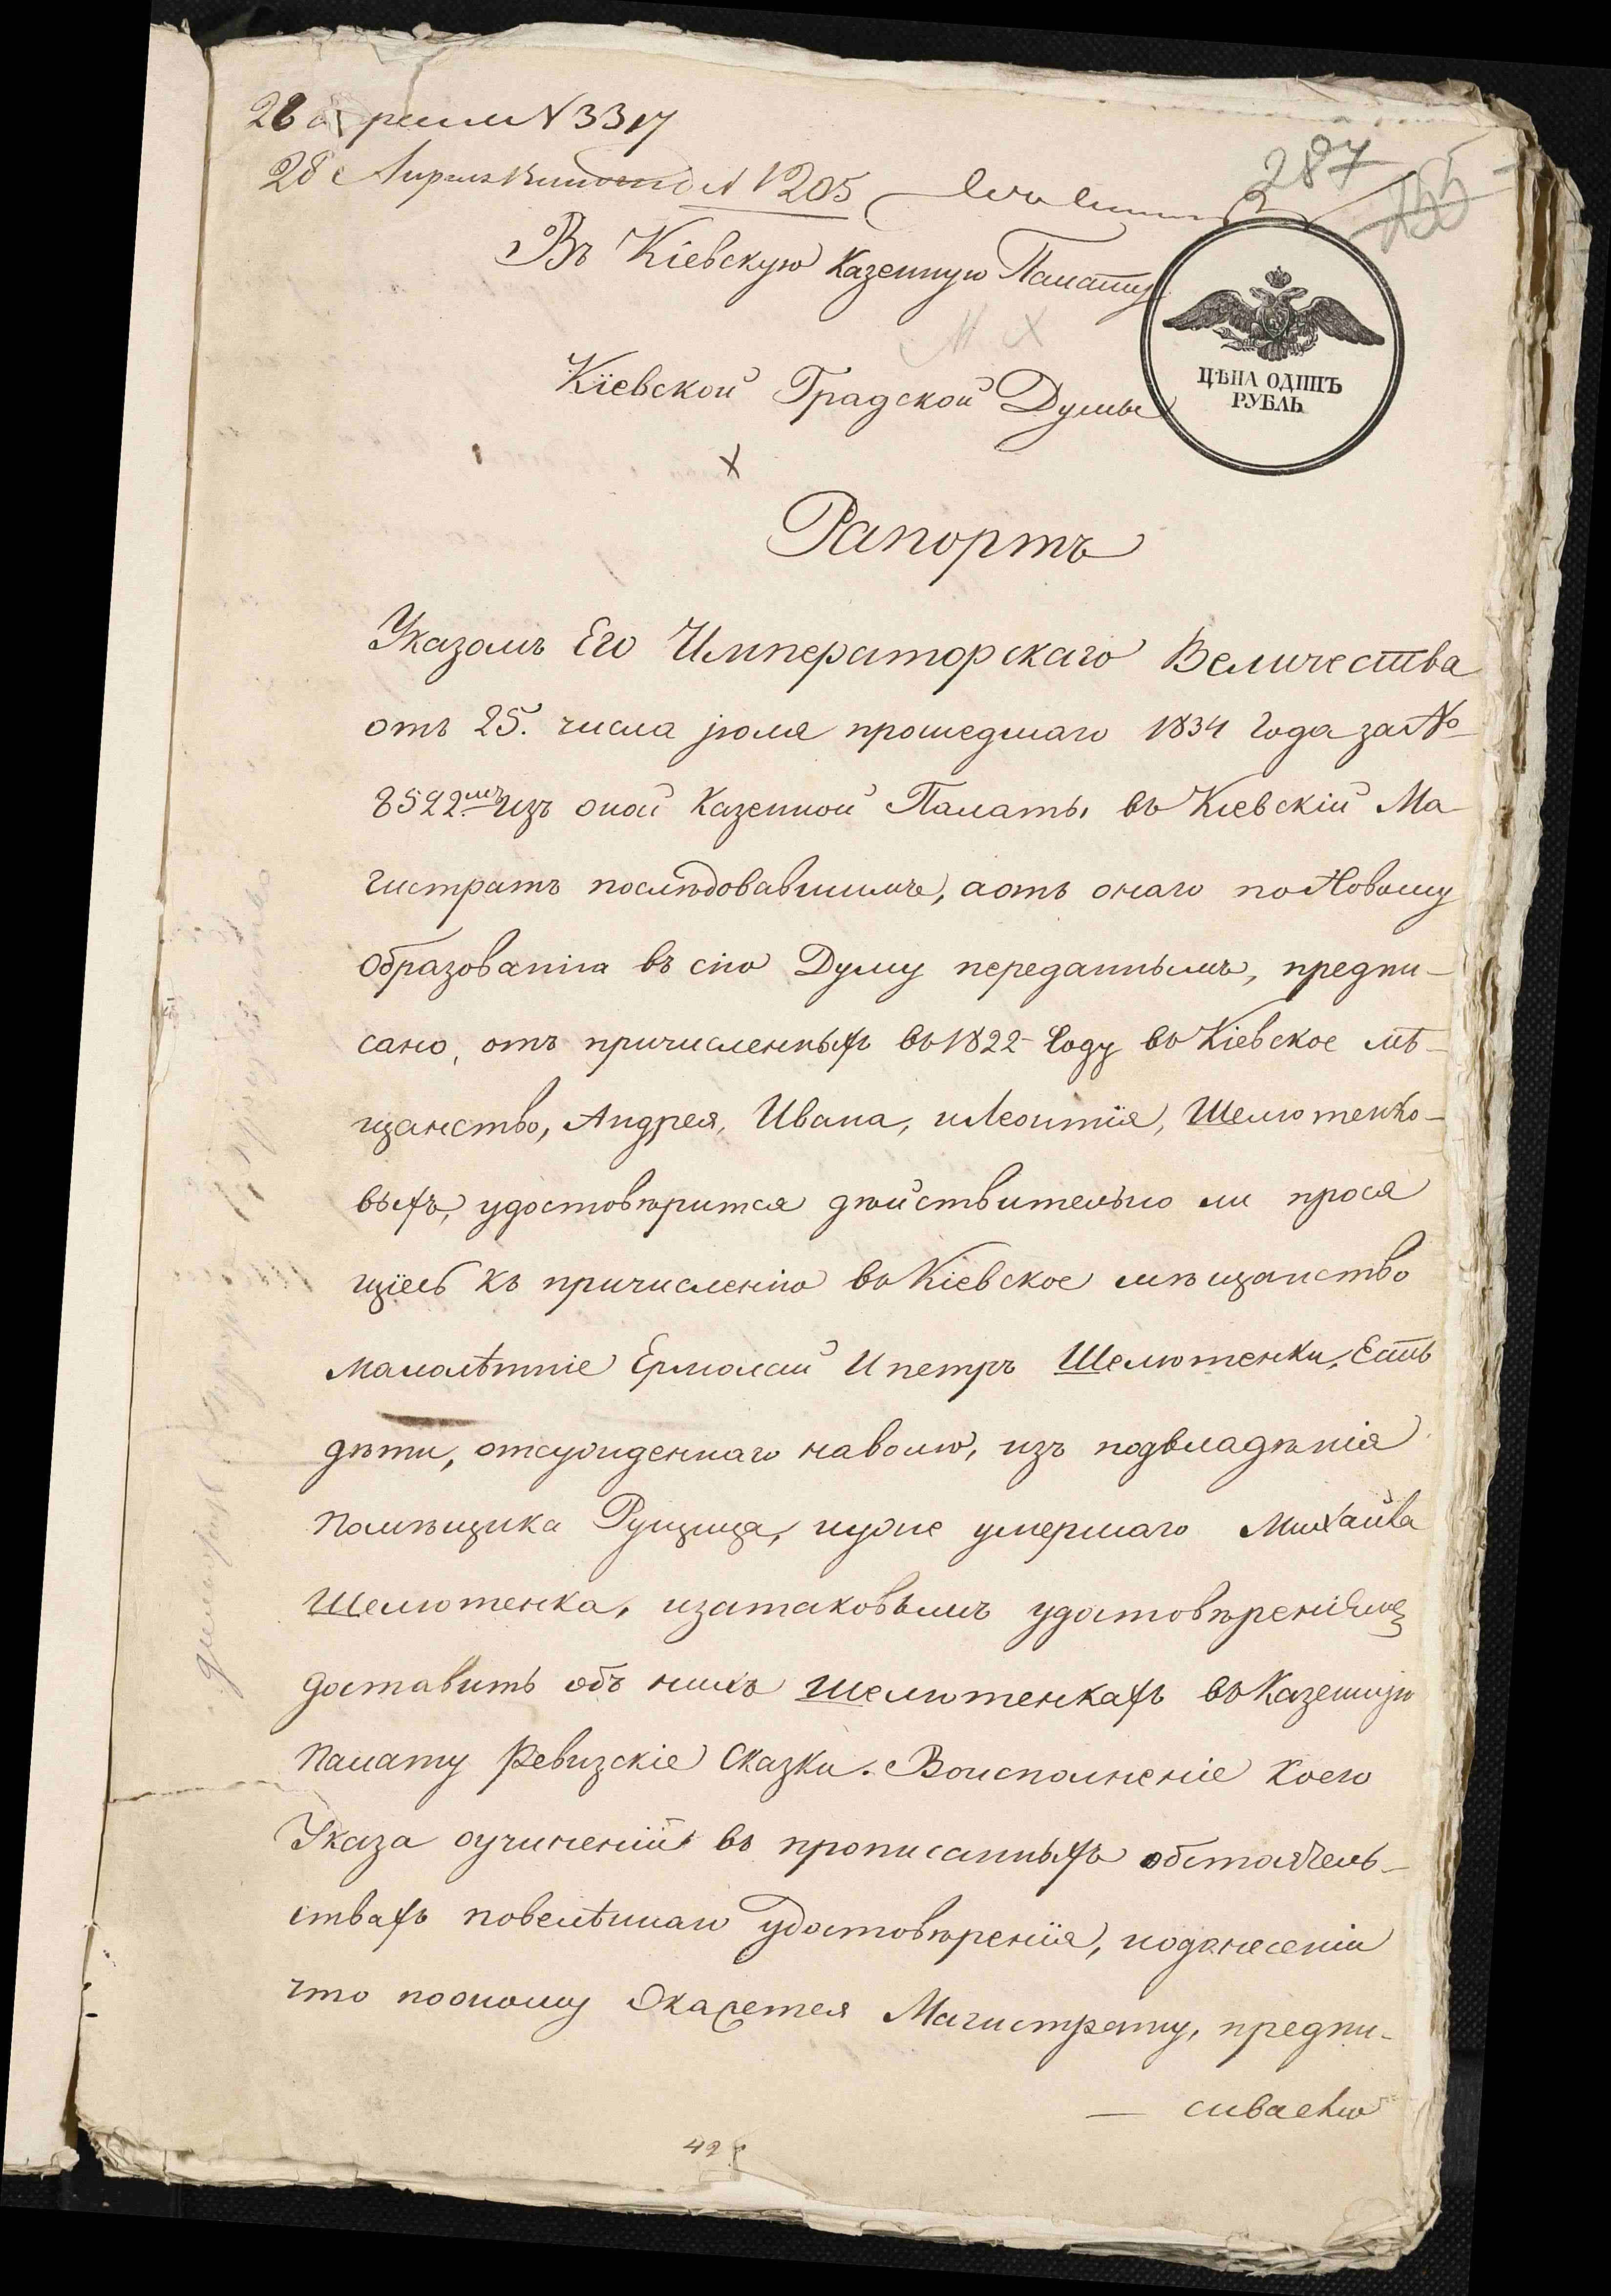 28 апреля N 3317
28 Апреля N 1205
287
Въ Кіевскую Казенную Палату
ЦѢНА ОДИНЪ
РУБЛЬ
Кіевской Градской Думы
Рапортъ
Указомъ Его Императорскаго Величества
отъ 25. числа іюля прошедшаго 1834 года за №
8522.мъ изъ оной Казенной Палаты въ Кіевскій Ма-
гистратъ последовавшимъ, а отъ онаго по Новому
образованію въ сію Думу переданнымъ, предпи-
сано, отъ причисленныхъ въ 1822 году въ Кіевское мѣ-
щанство, Андрея, Ивана, и Леонтія, Шелютенко-
выхъ, удостоверится действительно ли прося
щіесь къ причисленію въ Кіевское мещанство
малолѣтніе Ермолай и петръ Шелютенки, Есть
дети, отсужденнаго на волю, изъ подвладенія
помещика Рущица, и уже умершаго Михайла
Шелютенка, и за таковымъ удостовереніемъ
доставить объ нихъ Шелютенкахъ въ Казенную
палату Ревизскіе Сказки. Во исполненіе коего
Указа о учиненіи въ прописанныхъ обстоятель-
ствахъ повелѣннаго удостоверенія, и о донесеніи
что по оному Окажется Магистрату, предпи-
42